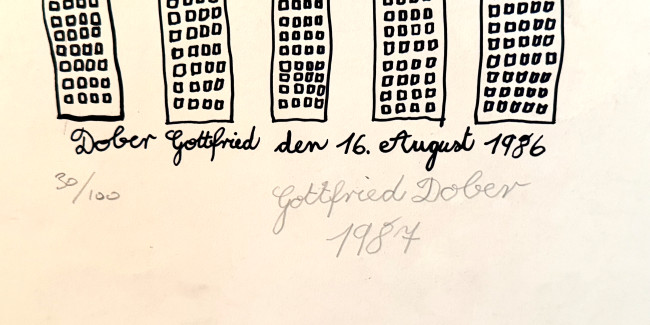 Dober Gottfried den 16. August 1986
30/100
Gottfried Dober
1987